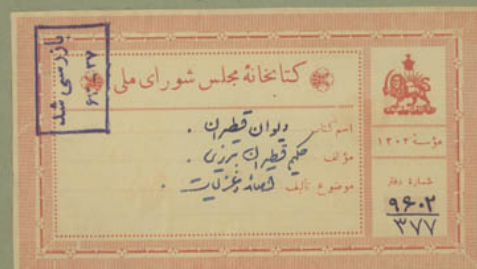 بازرسی شد
۳۷ - ۶۳
کتابخانهٔ مجلس شورای ملی
اسم کتاب دیوان قطران .
مؤلف حکیم قطران تبریزی .
موضوع تألیف قصائد و غزلیات .
مؤسسهٔ ۱۳۰۲
شمارهٔ دفتر
۹۶۰۲
۳۷۷